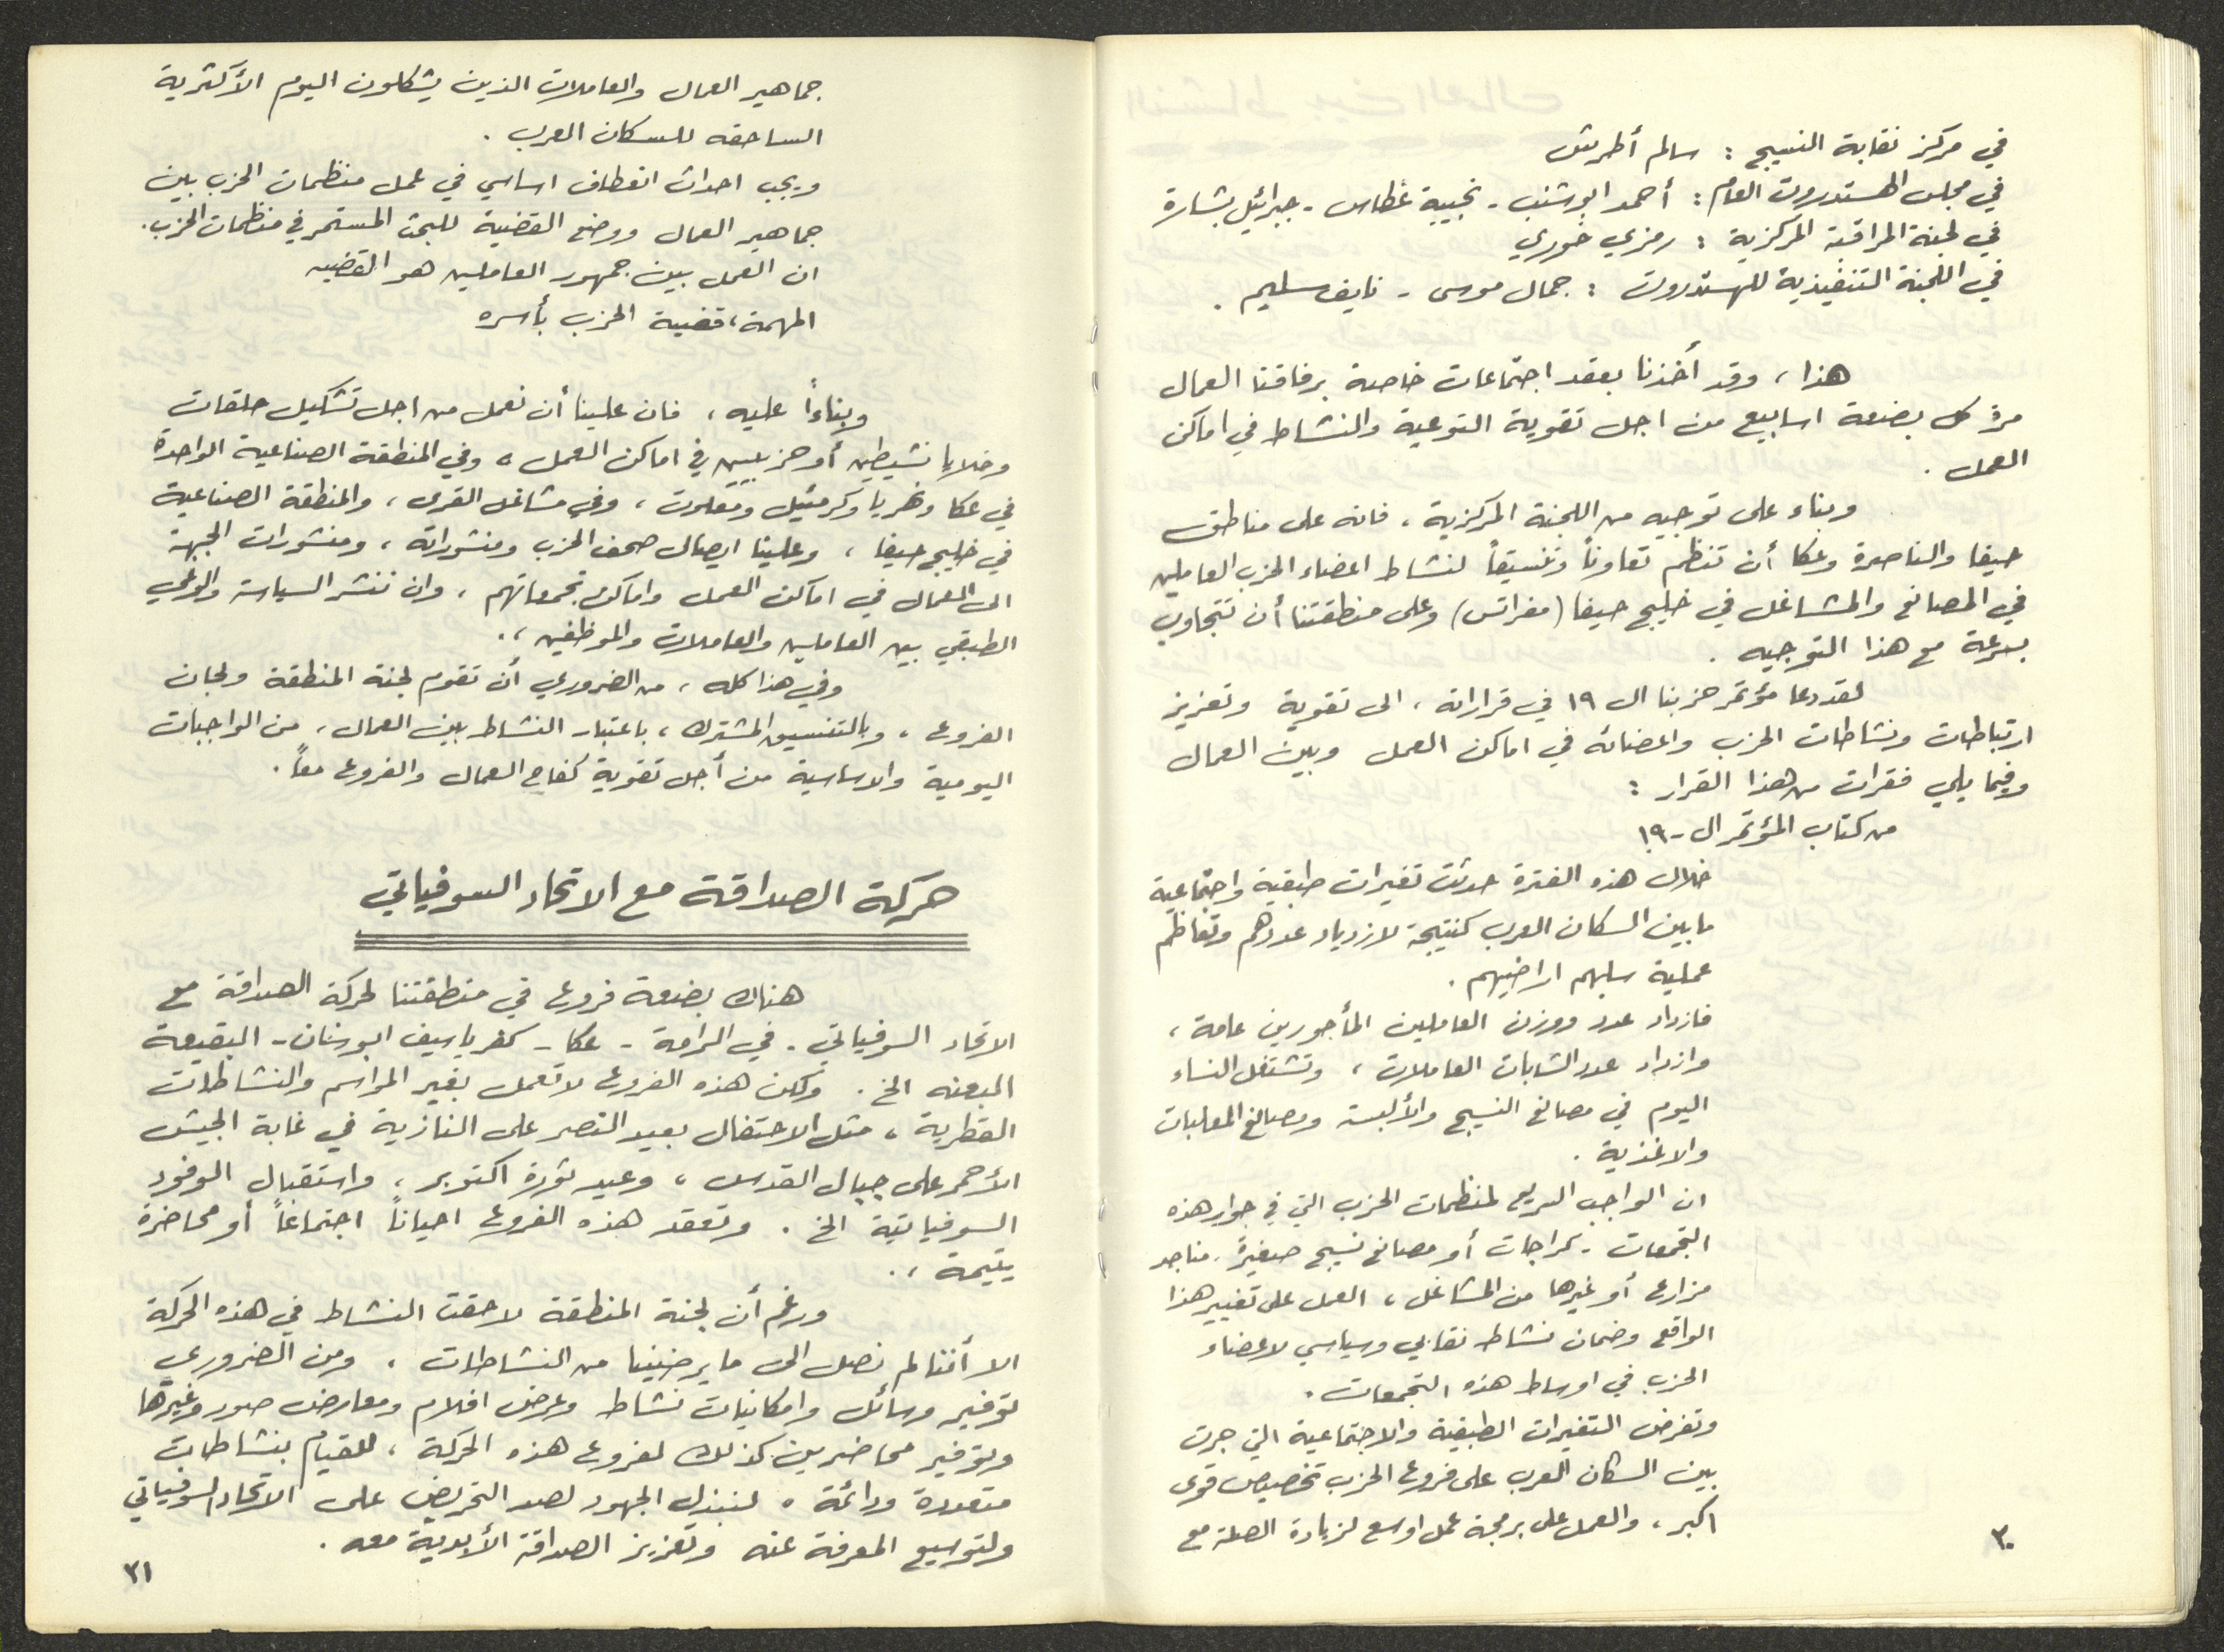 في مركز نقابة النسيج : سالم أطرش
في مجلس الهستدروت العام : أحمد ابو شنب - نجيبة غطاس - جبرائيل بشارة
في لجنة المراقبة المركزية : رمزي خوري
في اللجنة التنفيذية للهستدروت : جمال موسى - نايف سليم .
هذا ، وقد أخذنا بعقد اجتماعات خاصة برفاقنا العمال
مرة كل بضعة اسابيع من اجل تقوية التوعية والنشاط في اماكن
العمل .
وبناء على توجيه من اللجنة المركزية ، فانه على مناطق
حيفا والناصرة وعكا أن تنظم تعاوناً وتنسيقاً لنشاط اعضاء الحزب العاملين
في المصانع والمشاغل في خليج حيفا (مفراتس) وعلى منطقتنا أن تتجاوب
بسرعة مع هذا التوجيه .
لقد دعا مؤتمر حزبنا ال ١٩ في قراراته ، الى تقوية وتعزيز
ارتباطات ونشاطات الحزب واعضائه في اماكن العمل وبين العمال
وفيما يلي فقرات من هذا القرار :
من كتاب المؤتمر ال - ١٩
خلال هذه الفترة حدثت تغيرات طبقية واجتماعية
ما بين السكان العرب كنتيجة لازدياد عددهم وتعاظم
عملية سلبهم اراضيهم .
فازداد عدد ووزن العاملين المأجورين عامة ،
وازداد عدد الشابات العاملات ، وتشتغل النساء
اليوم في مصانع النسيج والألبسة ومصانع المعلبات
والاغذية .
ان الواجب السريع لمنظمات الحزب التي في جوار هذه
التجمعات - كراجات أو مصانع نسيج صغيرة ، مناجر
مزارع أو غيرها من المشاغل ، العمل على تغيير هذا
الواقع وضمان نشاط نقابي وسياسي لاعضاء
الحزب في اوساط هذه التجمعات .
وتفرض التغيرات الطبقية والاجتماعية التي جرت
بين السكان العرب على فروع الحزب تخصيص قوى
اكبر ، والعمل على برمجة عمل اوسع لزيادة الصلة مع
٣٠
جماهير العمال والعاملات الذين يشكلون اليوم الأكثرية
الساحقه للسكان العرب .
ويجب احداث انعطاف اساسي في عمل منظمات الحزب بين
جماهير العمال ووضع القضية للبحث المستمر في منظمات الحزب .
ان العمل بين جمهور العاملين هو القضيه
المهمة ، قضية الحزب بأسره
وبناءاً عليه ، فان علينا أن نعمل من اجل تشكيل حلقات
وخلايا نشيطين أو حزبيين في اماكن العمل ، وفي المنطقة الصناعية الواحدة
في عكا ونهريا وكرمئيل ومعلوت ، وفي مشاغل القرى ، والمنطقة الصناعية
في خليج حيفا ، وعلينا ايصال صحف الحزب ومنشوراته ، ومنشورات الجبهة
الى العمال في اماكن العمل واماكن تجمعاتهم ، وان ننشر السياسة والوعي
الطبقي بين العاملين والعاملات والموظفين .
وفي هذا كله ، من الضروري أن تقوم لجنة المنطقة ولجان
الفروع ، وبالتنسيق المشترك ، باعتبار النشاط بين العمال ، من الواجبات
اليومية والاساسية من أجل تقوية كفاح العمال والفروع معاً .
حركة الصداقة مع الاتحاد السوفياتي
هناك بضعة فروع في منطقتنا لحركة الصداقة مع
الاتحاد السوفياتي - في الرامة - عكا - كفر ياسيف ابوسنان - البقيعة
البعنه الخ . ولكن هذه الفروع لا تعمل بغير المراسم والنشاطات
القطرية ، مثل الاحتفال بعيد النصر على النازية في غابة الجيش
الأحمر على جبال القدس ، وعيد ثورة اكتوبر ، واستقبال الوفود
السوفياتية الخ . وتعقد هذه الفروع احياناً اجتماعاً أو محاضرة
يتيمة .
ورغم أن لجنة المنطقة لاحقت النشاط في هذه الحركة
الا أننا لم نصل الى ما يرضينا من النشاطات . ومن الضروري
توفير وسائل وامكانيات نشاط وعرض افلام ومعارض صور وغيرها
وتوفير محاضرين كذلك لفروع هذه الحركة ، للقيام بنشاطات
متعددة ودائمة ، لنبذل الجهود لصد التحريض على الاتحاد السوفياتي
ولتوسيع المعرفة عنه وتعزيز الصداقة الأبدية معه .
٣١